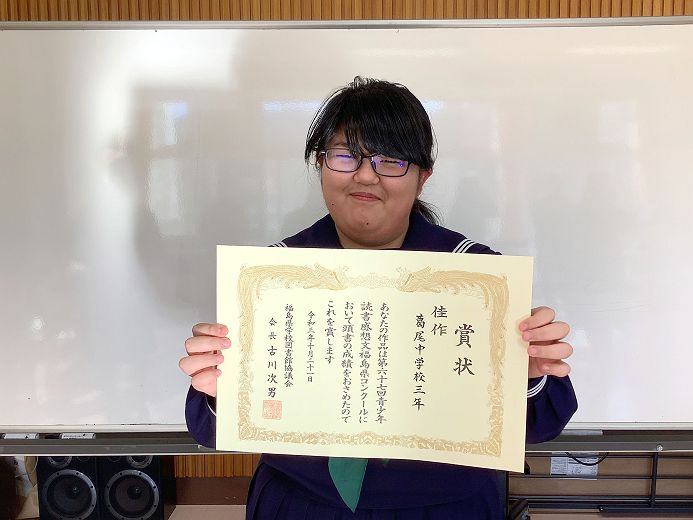 賞状
佳作
葛尾中学校三年
あなたの作品は第六十七回青少年
読書感想文福島県コンクールに
おいて頭書の成績をおさめたので
これを賞します
令和三年十月二十一日
福島県学校図書館協議会
会長 古川次男